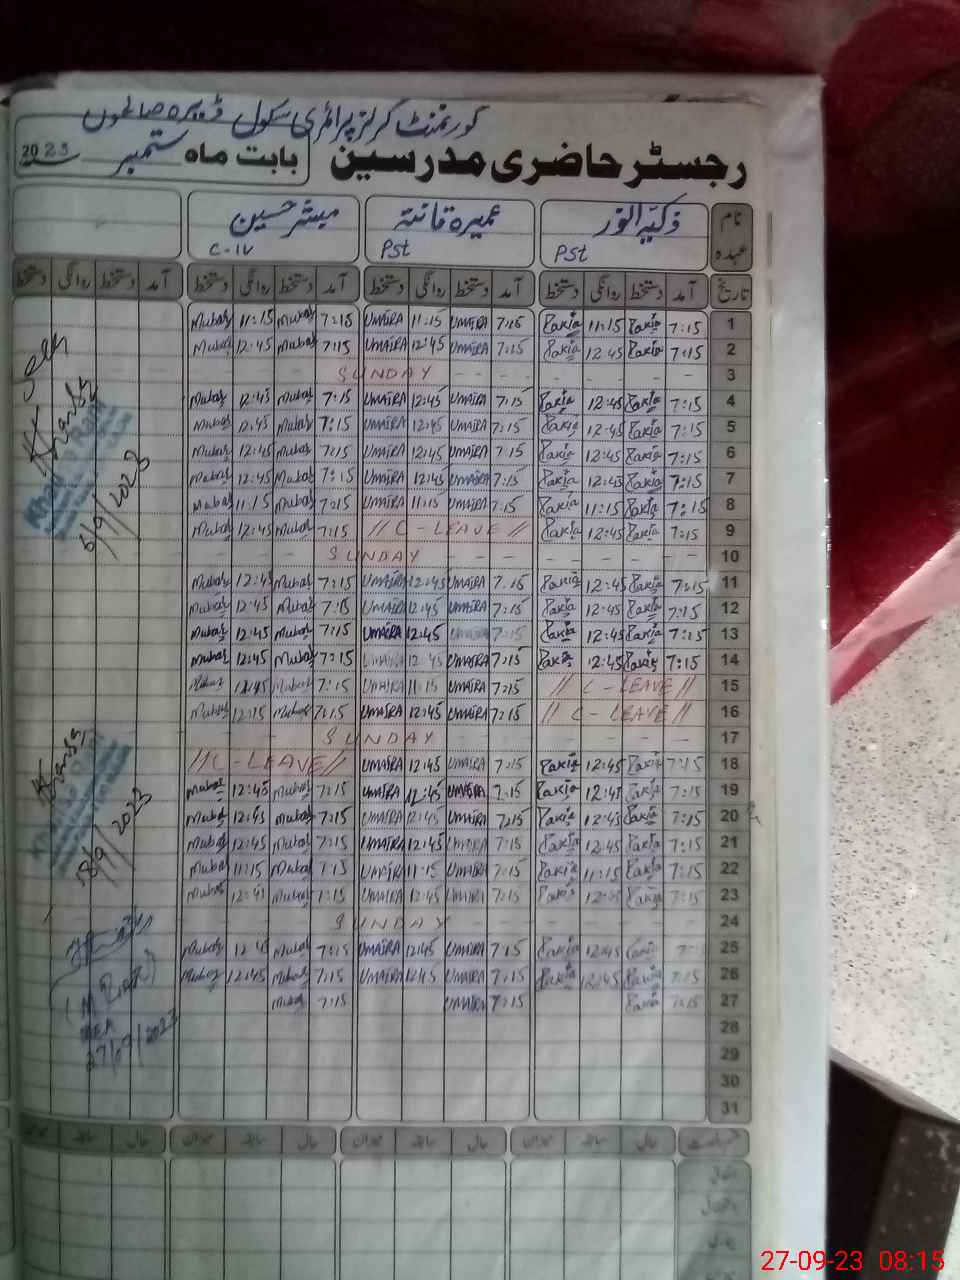 گورنمنٹ گرلز پرائمری سکول ڈیرہ صالحوں
رجسٹر حاضری مدرسین بابت ماہ ستمبر 2023
نام ذکیہ انور عمیرہ فائقہ مبشر حسین
عہدہ PST PST C-IV
تاریخ آمد دستخط روانگی دستخط آمد دستخط روانگی دستخط آمد دستخط روانگی دستخط آمد دستخط روانگی دستخط
1 7:15 Zakia 11:15 Zakia 7:15 UMAIRA 11:15 UMAIRA 7:15 Mubas 11:15 Mubas
2 7:15 Zakia 12:45 Zakia 7:15 UMAIRA 12:45 UMAIRA 7:15 Mubas 12:45 Mubas
3 SUNDAY
4 7:15 Zakia 12:45 Zakia 7:15 UMAIRA 12:45 UMAIRA 7:15 Mubas 12:45 Mubas
5 7:15 Zakia 12:45 Zakia 7:15 UMAIRA 12:45 UMAIRA 7:15 Mubas 12:45 Mubas
6 7:15 Zakia 12:45 Zakia 7:15 UMAIRA 12:45 UMAIRA 7:15 Mubas 12:45 Mubas
7 7:15 Zakia 12:45 Zakia 7:15 UMAIRA 12:45 UMAIRA 7:15 Mubas 12:45 Mubas
8 7:15 Zakia 11:15 Zakia 7:15 UMAIRA 11:15 UMAIRA 7:15 Mubas 11:15 Mubas
9 7:15 Zakia 12:45 Zakia // C - LEAVE // 7:15 Mubas 12:45 Mubas
10 SUNDAY
11 7:15 Zakia 12:45 Zakia 7:15 UMAIRA 12:45 UMAIRA 7:15 Mubas 12:45 Mubas
12 7:15 Zakia 12:45 Zakia 7:15 UMAIRA 12:45 UMAIRA 7:15 Mubas 12:45 Mubas
13 7:15 Zakia 12:45 Zakia 7:15 UMAIRA 12:45 UMAIRA 7:15 Mubas 12:45 Mubas
14 7:15 Zakia 12:45 Zakia 7:15 UMAIRA 12:45 UMAIRA 7:15 Mubas 12:45 Mubas
15 // C - LEAVE // 7:15 UMAIRA 11:15 UMAIRA 7:15 Mubas Mubas
16 // C - LEAVE // 7:15 UMAIRA 12:45 UMAIRA 7:15 Mubas Mubas
17 SUNDAY
18 7:15 Zakia 12:45 Zakia 7:15 UMAIRA 12:45 UMAIRA // C - LEAVE //
19 7:15 Zakia 12:45 Zakia 7:15 UMAIRA 12:45 UMAIRA 7:15 Mubas 12:45 Mubas
20 7:15 Zakia 12:45 Zakia 7:15 UMAIRA 12:45 UMAIRA 7:15 Mubas 12:45 Mubas
21 7:15 Zakia 12:45 Zakia 7:15 UMAIRA 12:45 UMAIRA 7:15 Mubas 12:45 Mubas
22 7:15 Zakia 11:15 Zakia 7:15 UMAIRA 11:15 UMAIRA 7:15 Mubas 11:15 Mubas
23 7:15 Zakia 12:45 Zakia 7:15 UMAIRA 12:45 UMAIRA 7:15 Mubas 12:45 Mubas
24 SUNDAY
25 Zakia 12:45 Zakia 7:15 UMAIRA 12:45 UMAIRA 7:15 Mubas 12:45 Mubas
26 7:15 Zakia 12:45 Zakia 7:15 UMAIRA 12:45 UMAIRA 7:15 Mubas 12:45 Mubas
27 7:15 Zakia 7:15 UMAIRA 7:15 Mubas
28
29
30
31
حال سابقہ میزان حال سابقہ میزان حال سابقہ میزان حال سابقہ میزان
/9/2023
18/9/2023
MEA
27/09/2023
27-09-23 08:15